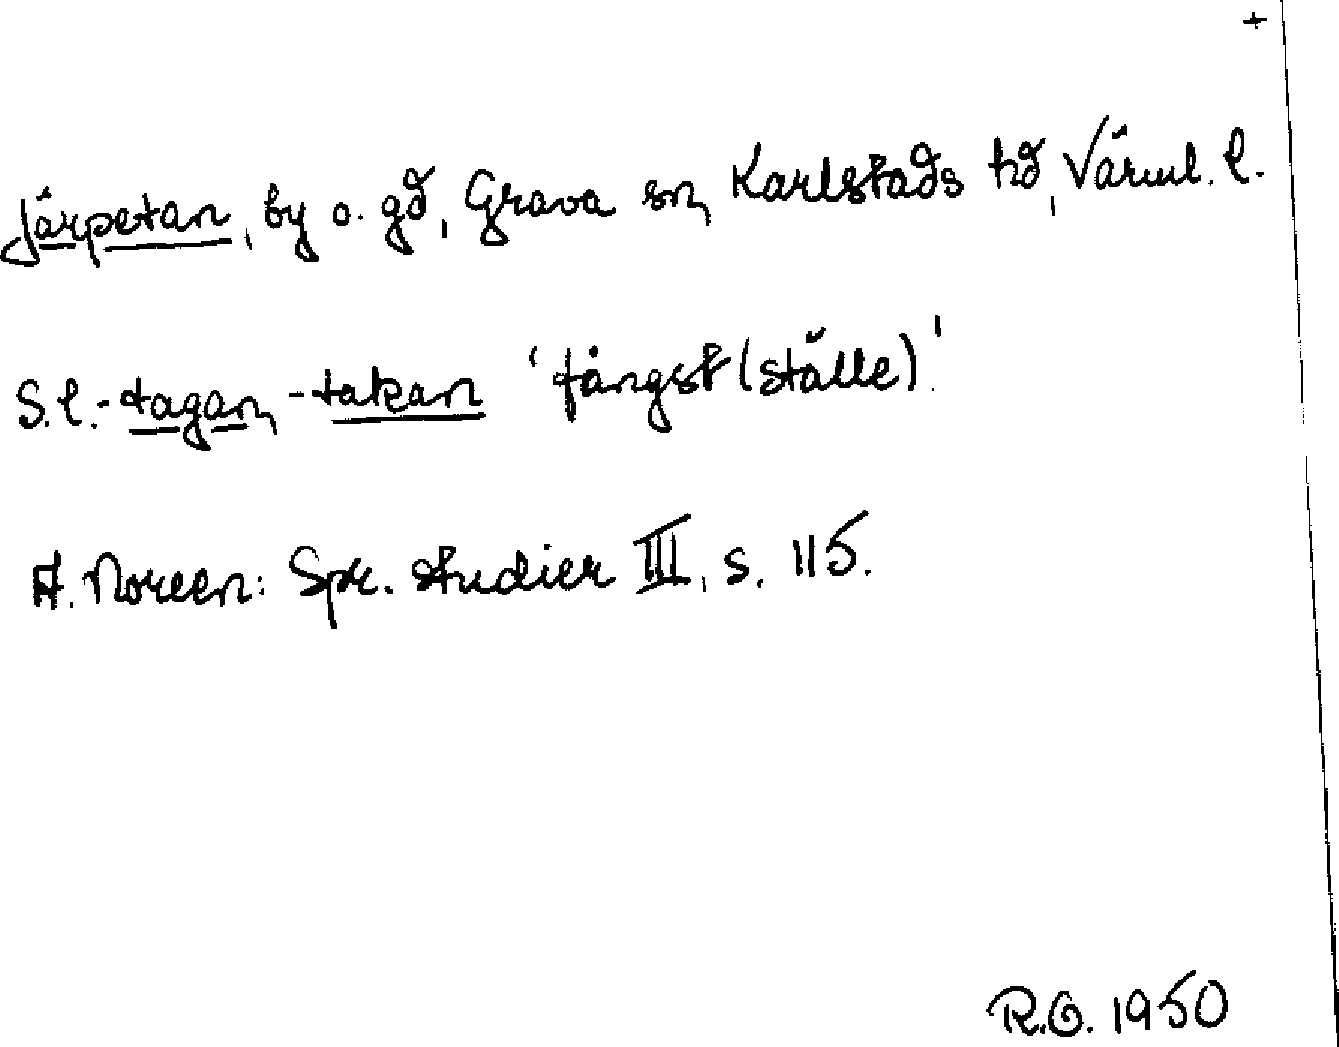 +
Järpetan, by o. gd, Grava sn, Karlstads hd, Värml. l.
S.l. -tagan, -takan 'fångst(ställe)'.
A. Noreen: Spr. studier III, s. 115.
R.O. 1950